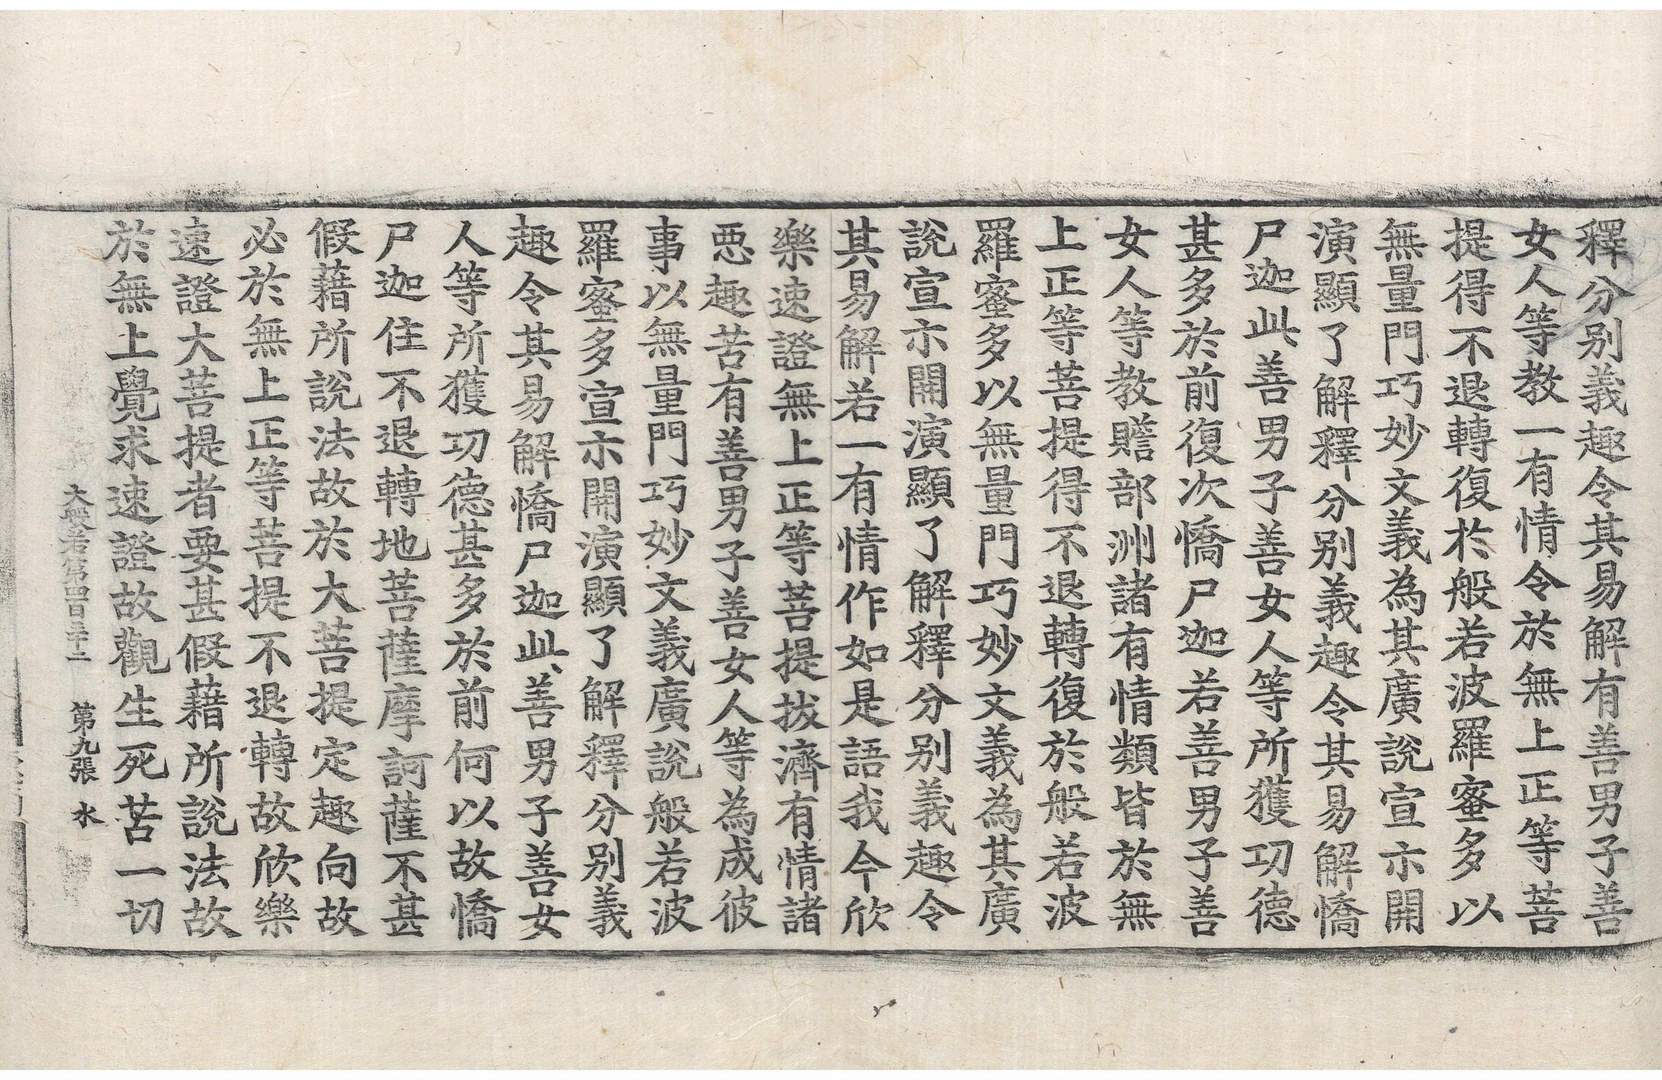 釋分別義趣令其易解有善男子善
女人等教一有情令於無上正等菩
提得不退轉復於般若波羅蜜多以
無量門巧妙文義為其廣說宣示開
演顯了解釋分別義趣令其易解憍
尸迦此善男子善女人等所獲功德
甚多於前復次憍尸迦若善男子善
女人等教贍部洲諸有情類皆於無
上正等菩提得不退轉復於般若波
羅蜜多以無量門巧妙文義為其廣
說宣示開演顯了解釋分別義趣令
其易解若一有情作如是語我今欣
樂速證無上正等菩提拔濟有情諸
惡趣苦有善男子善女人等為成彼
事以無量門巧妙文義廣說般若波
羅蜜多宣示開演顯了解釋分別義
趣令其易解憍尸迦此善男子善女
人等所獲功德甚多於前何以故憍
尸迦住不退轉地菩薩摩訶薩不甚
假藉所說法故於大菩提定趣向故
必於無上正等菩提不退轉故欣樂
速證大菩提者要甚假藉所說法故
於無上覺求速證故觀生死苦一切
大般若第四百三十二 第九張 水